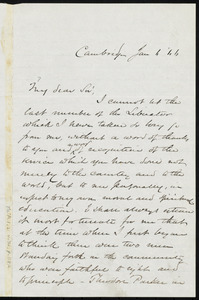 Cambridge Jan 6. 66
My dear Sir,
I cannot let the
last number of the Liberator
which I have taken so long go
from me, without a word of thanks
to you, & recognition of the
service which you have done not
merely to the country and to the
world, but to me personally, in
respect to my own moral and spiritual
education. I shall always esteem
it most fortunate to me that
at the time when I first began
to think there were two men
standing forth in the community
who were faithful to right and
to principle – Theodore Parker in